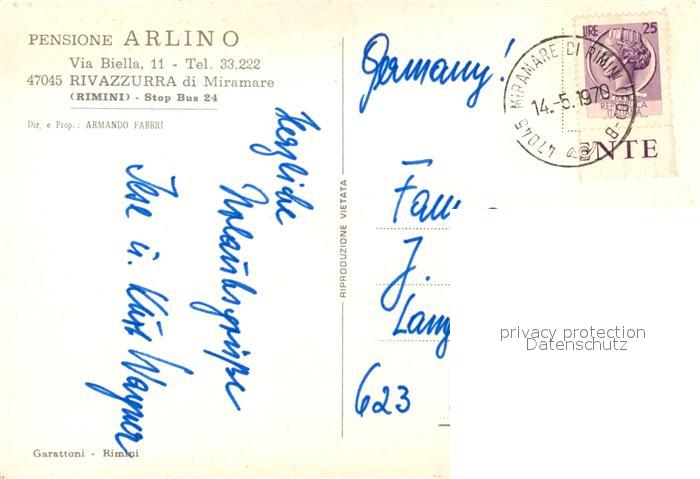 PENSIONE ARLINO
Via Biella, 11 - Tel. 33.222
47045 RIVAZZURRA di Miramare
(RIMINI) - Stop Bus 24
Dir. e Prop.: ARMANDO FABBRI
Herzliche
Urlaubsgrüße
Ilse u. Kurt Wagner
Garattoni - Rimini
RIPRODUZIONE VIETATA
Germany!
LIRE 25
REPUBBLICA
ITALIANA
47045 MIRAMARE DI RIMINI
14.-5.1970
NTE
Fam
J.
Lang
623
privacy protection
Datenschutz